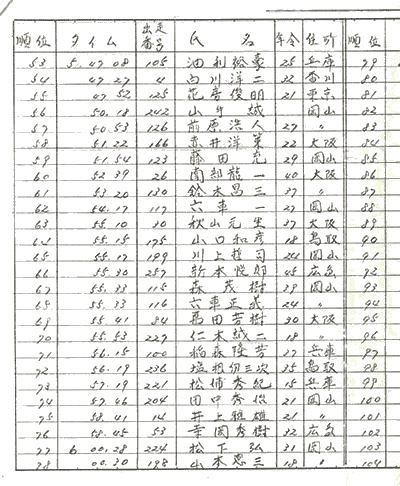 順位 タイム 出走番号 氏 名 年令 住所 順位
53 5.47.08 105 油利裕豪 25 兵庫 79
54 47.27 4 白川洋二 22 香川 80
55 47.52 125 花房俊明 21 東京 81
56 50.18 242 山 誠 岡山 82
57 50.53 126 前原浩人 27 〃 83
58 51.22 166 赤井洋 22 大阪 84
59 51.54 123 藤田 充 29 岡山 85
60 52.39 26 南部龍一 40 大阪 86
61 53.20 130 鈴木昌三 37 〃 87
62 54.17 117 六車 一 27 岡山 88
63 55.10 30 秋山元生 37 大阪 89
64 55.15 175 山口和彦 18 鳥取 90
65 55.17 199 川上哲司 24 岡山 91
66 55.30 257 新本悦郎 45 広島 92
67 55.33 115 森 茂樹 39 岡山 93
68 55.33 116 六車正義 24 〃 94
69 55.41 84 吉田芳樹 30 大阪 95
70 55.53 227 仁木誠二 18 〃 96
71 56.15 100 稲森隆芳 27 兵庫 97
72 56.19 236 塩 三次 35 鳥取 98
73 57.19 221 松浦秀紀 15 兵庫 99
74 57.46 204 田中秀俊 21 岡山 100
75 58.41 14 井上雅雄 21 〃 101
76 58.45 53 寺岡秀樹 32 広島 102
77 6.00.28 224 松下 弘 31 岡山 103
78 00.30 198 山本恵三 18 〃 104